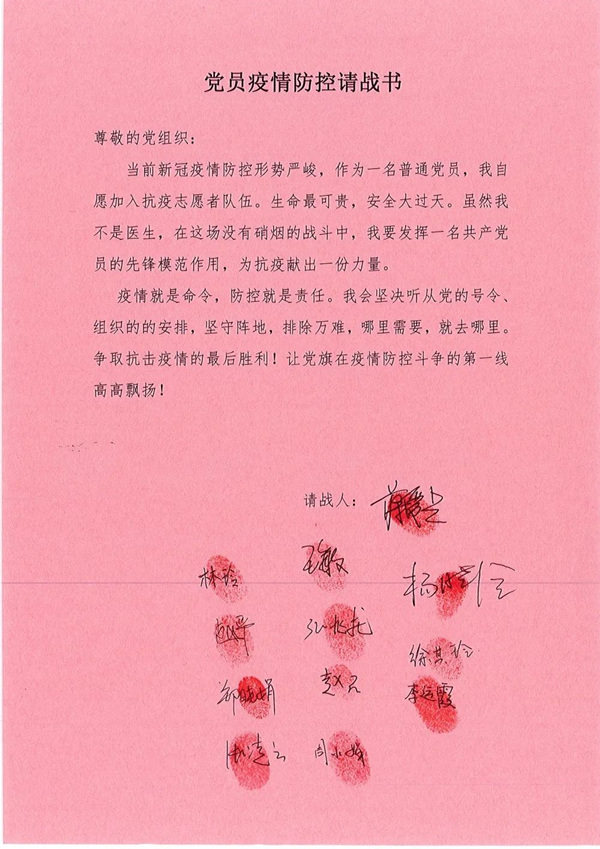 党员疫情防控请战书
尊敬的党组织：
当前新冠疫情防控形势严峻，作为一名普通党员，我自
愿加入抗疫志愿者队伍。生命最可贵，安全大过天。虽然我
不是医生，在这场没有硝烟的战斗中，我要发挥一名共产党
员的先锋模范作用，为抗疫献出一份力量。
疫情就是命令，防控就是责任。我会坚决听从党的号令、
组织的的安排，坚守阵地，排除万难，哪里需要，就去哪里。
争取抗击疫情的最后胜利！让党旗在疫情防控斗争的第一线
高高飘扬！
请战人：
林玲
徐其玲
李运霞